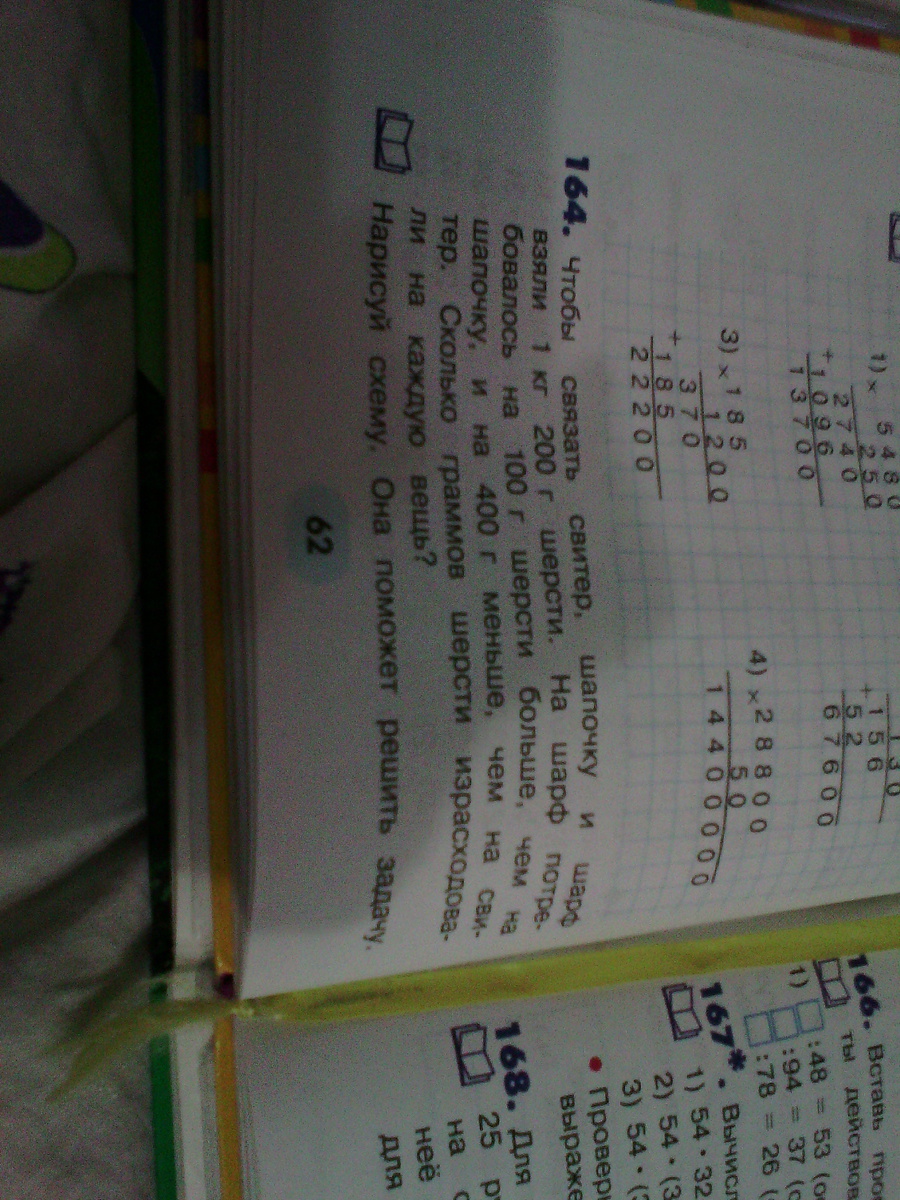 1) × 5 4 8 0
2 5 0
2 7 4 0
+ 1 0 9 6
1 3 7 0 0
1 3 0
+ 1 5 6
5 2
6 7 6 0 0
3) × 1 8 5
1 2 0 0
3 7 0
+ 1 8 5
2 2 2 0 0
4) × 2 8 8 0 0
5 0
1 4 4 0 0 0 0
164. Чтобы связать свитер, шапочку и шарф
взяли 1 кг 200 г шерсти. На шарф потре-
бовалось на 100 г шерсти больше, чем на
шапочку, и на 400 г меньше, чем на сви-
тер. Сколько граммов шерсти израсходова-
ли на каждую вещь?
Нарисуй схему. Она поможет решить задачу.
62
166. Вставь
ты
1) :48 = 53
:94 = 37
:78 = 26
167*.
1) 54 · 32
2) 54 · (3
3) 54 ·
168. Для
25
на
неё
для